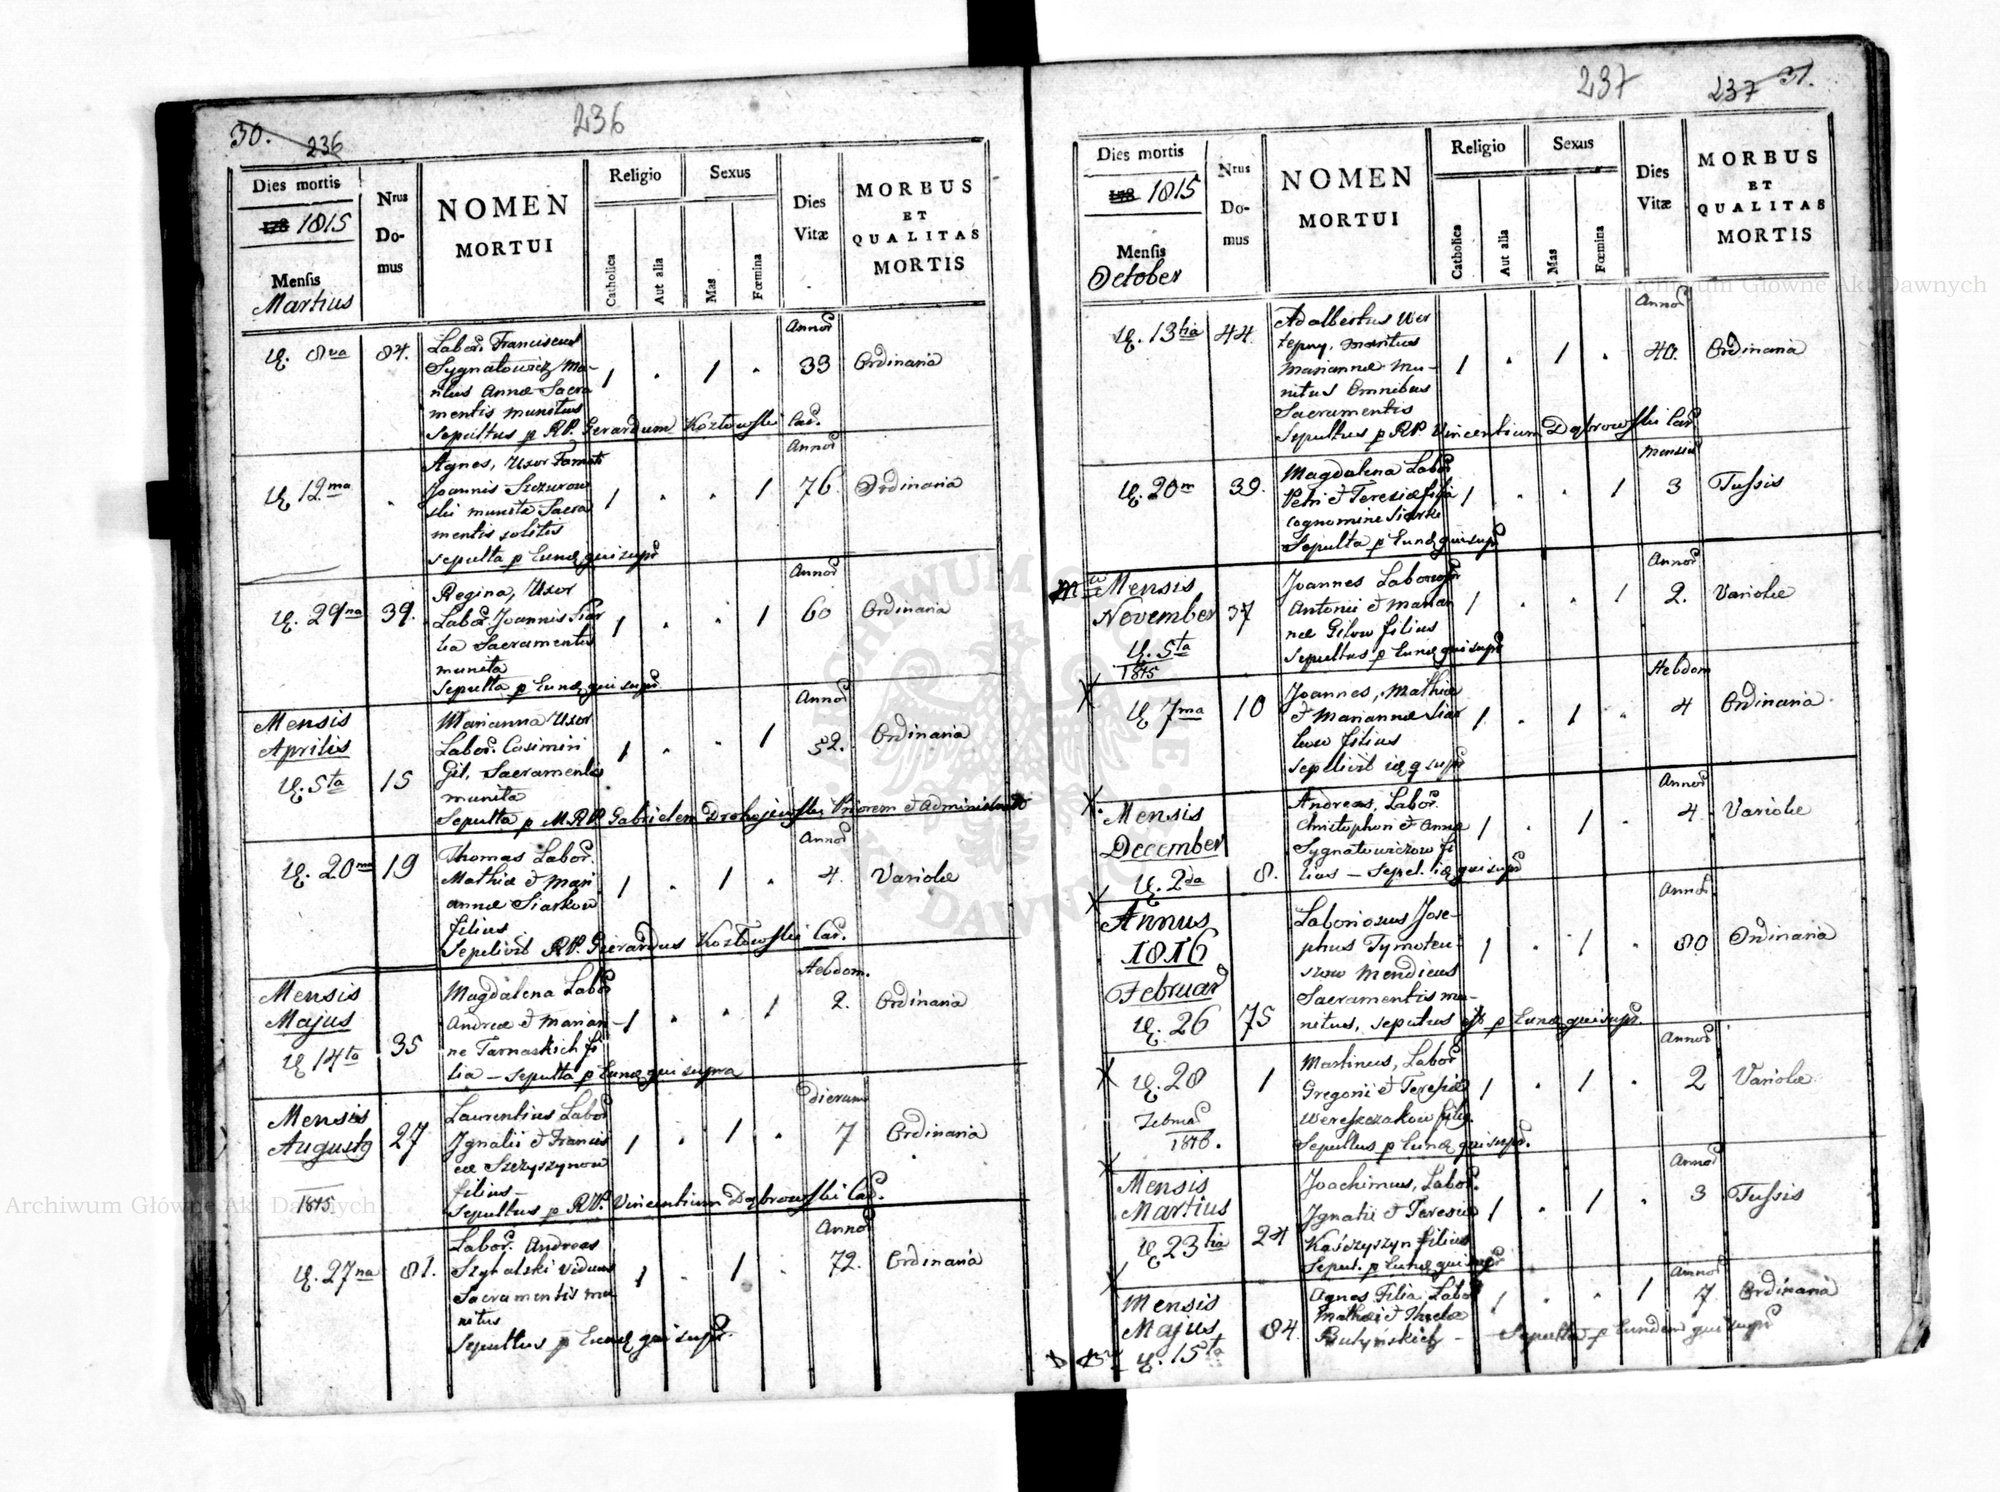 30.
236
236
Dies mortis
178 1815
Mensis
Martius
Nrus
Do-
mus
NOMEN
MORTUI
Religio
Catholica
Aut alia
Sexus
Mas
Fœmina
Dies
Vitæ
MORBUS
ET
QUALITAS
MORTIS
8va
84.
Labor. Franciscus
Sygnatowicz Ma-
ritus Annæ Sacra
mentis munitus
Sepultus p RP. Gerardum Kozłowski Cap.
Annor
33
Ordinaria
12ma
Agnes, Uxor Famati
Joannis Szczurow
ski munita Sacra
mentis solitis
Sepulta p Eund qui supr
Annor
76
Ordinaria
29na
39.
Regina, Uxor
Labor. Joannis Siar
ka Sacramentis
munita
Sepulta p Eund qui supr
Annor
60
Ordinaria
Mensis
Aprilis
5ta
15
Marianna Uxor
Labor. Casimiri
Gil, Sacramentis
munita
Sepulta p M.RP. Gabrielem Drohojewski Priorem et Administrato
Annor
52.
Ordinaria
20ma
19
Thomas Labor.
Mathiæ et Mari
annæ Siarkow
filius
Sepelivit RP. Gierardus Kozłowski Cap.
Annor
4.
Variolæ
Mensis
Majus
14ta
35
Magdalena Labor
Andreæ et Marian-
næ Tarnaskich fi
lia — Sepulta p Eund qui supra
Hebdom.
2.
Ordinaria
Mensis
Augusty
1815
27
Laurentius Labor
Ignatii et Francis
cæ Szczyszynow
filius —
Sepultus p RP. Vincentium Dąbrowski Cap.
dierum
7
Ordinaria
27na
81.
Labor. Andreas
Szynalski viduus
Sacramentis mu
nitus
Sepultus p Eund qui supr.
Annor
72.
Ordinaria
237
237
31.
Dies mortis
178 1815
Mensis
October
Nrus
Do-
mus
NOMEN
MORTUI
Religio
Catholica
Aut alia
Sexus
Mas
Fœmina
Dies
Vitæ
MORBUS
ET
QUALITAS
MORTIS
13tia
44
Adalbertus Wer
tepny, maritus
Mariannæ Mu-
nitus Omnibus
Sacramentis
Sepultus p RP. Vincentium Dąbrowski Cap
Annor
40.
Ordinaria
20m
39.
Magdalena Labor
Petri et Teresiæ filia
cognomine Siarka
Sepulta p Eund qui supr
Mensiu
3
Tussis
Mensis
November
5ta
1815
37
Joannes Laborios
Antonii et Marian
næ Gilow filius
Sepultus p Eund qui supr
Annor
2.
Variolæ
7ma
10
Joannes, Mathiæ
et Mariannæ Siar
kow filius
Sepelivit
Hebdom
4
Ordinaria
Mensis
December
2da
8.
Andreas, Labor.
Christophori et Annæ
Sygnatowiczow fi
lius — Sepel. qui supr
Annor
4
Variolæ
Annus
1816
Februar
26
75
Laboriosus Jose-
phus Tymoteu-
szow Mendicus
Sacramentis mu-
nitus, Sepultus est p Eund qui supr.
Annor
80
Ordinaria
28
1816.
1
Martinus, Labor
Gregorii et Teresiæ
Wereszczakow filiu
Sepultus p Eund qui supr.
Annor
2
Variolæ
Mensis
Martius
23tia
24
Joachimus, Labor.
Ignatii et Teresiæ
Kaśczyszyn filius
Sepul. p Eund qui supr
Annor
3
Tussis
Mensis
Majus
15ta
84.
Agnes Filia Labor
Mathæi et Theclæ
Butynskich — Sepulta p Eundem qui supr
Annor
7
Ordinaria
Archiwum Główne Akt Dawnych
Archiwum Główne Akt Dawnych
ARCHIWUM GŁÓWNE
AKT DAWNYCH